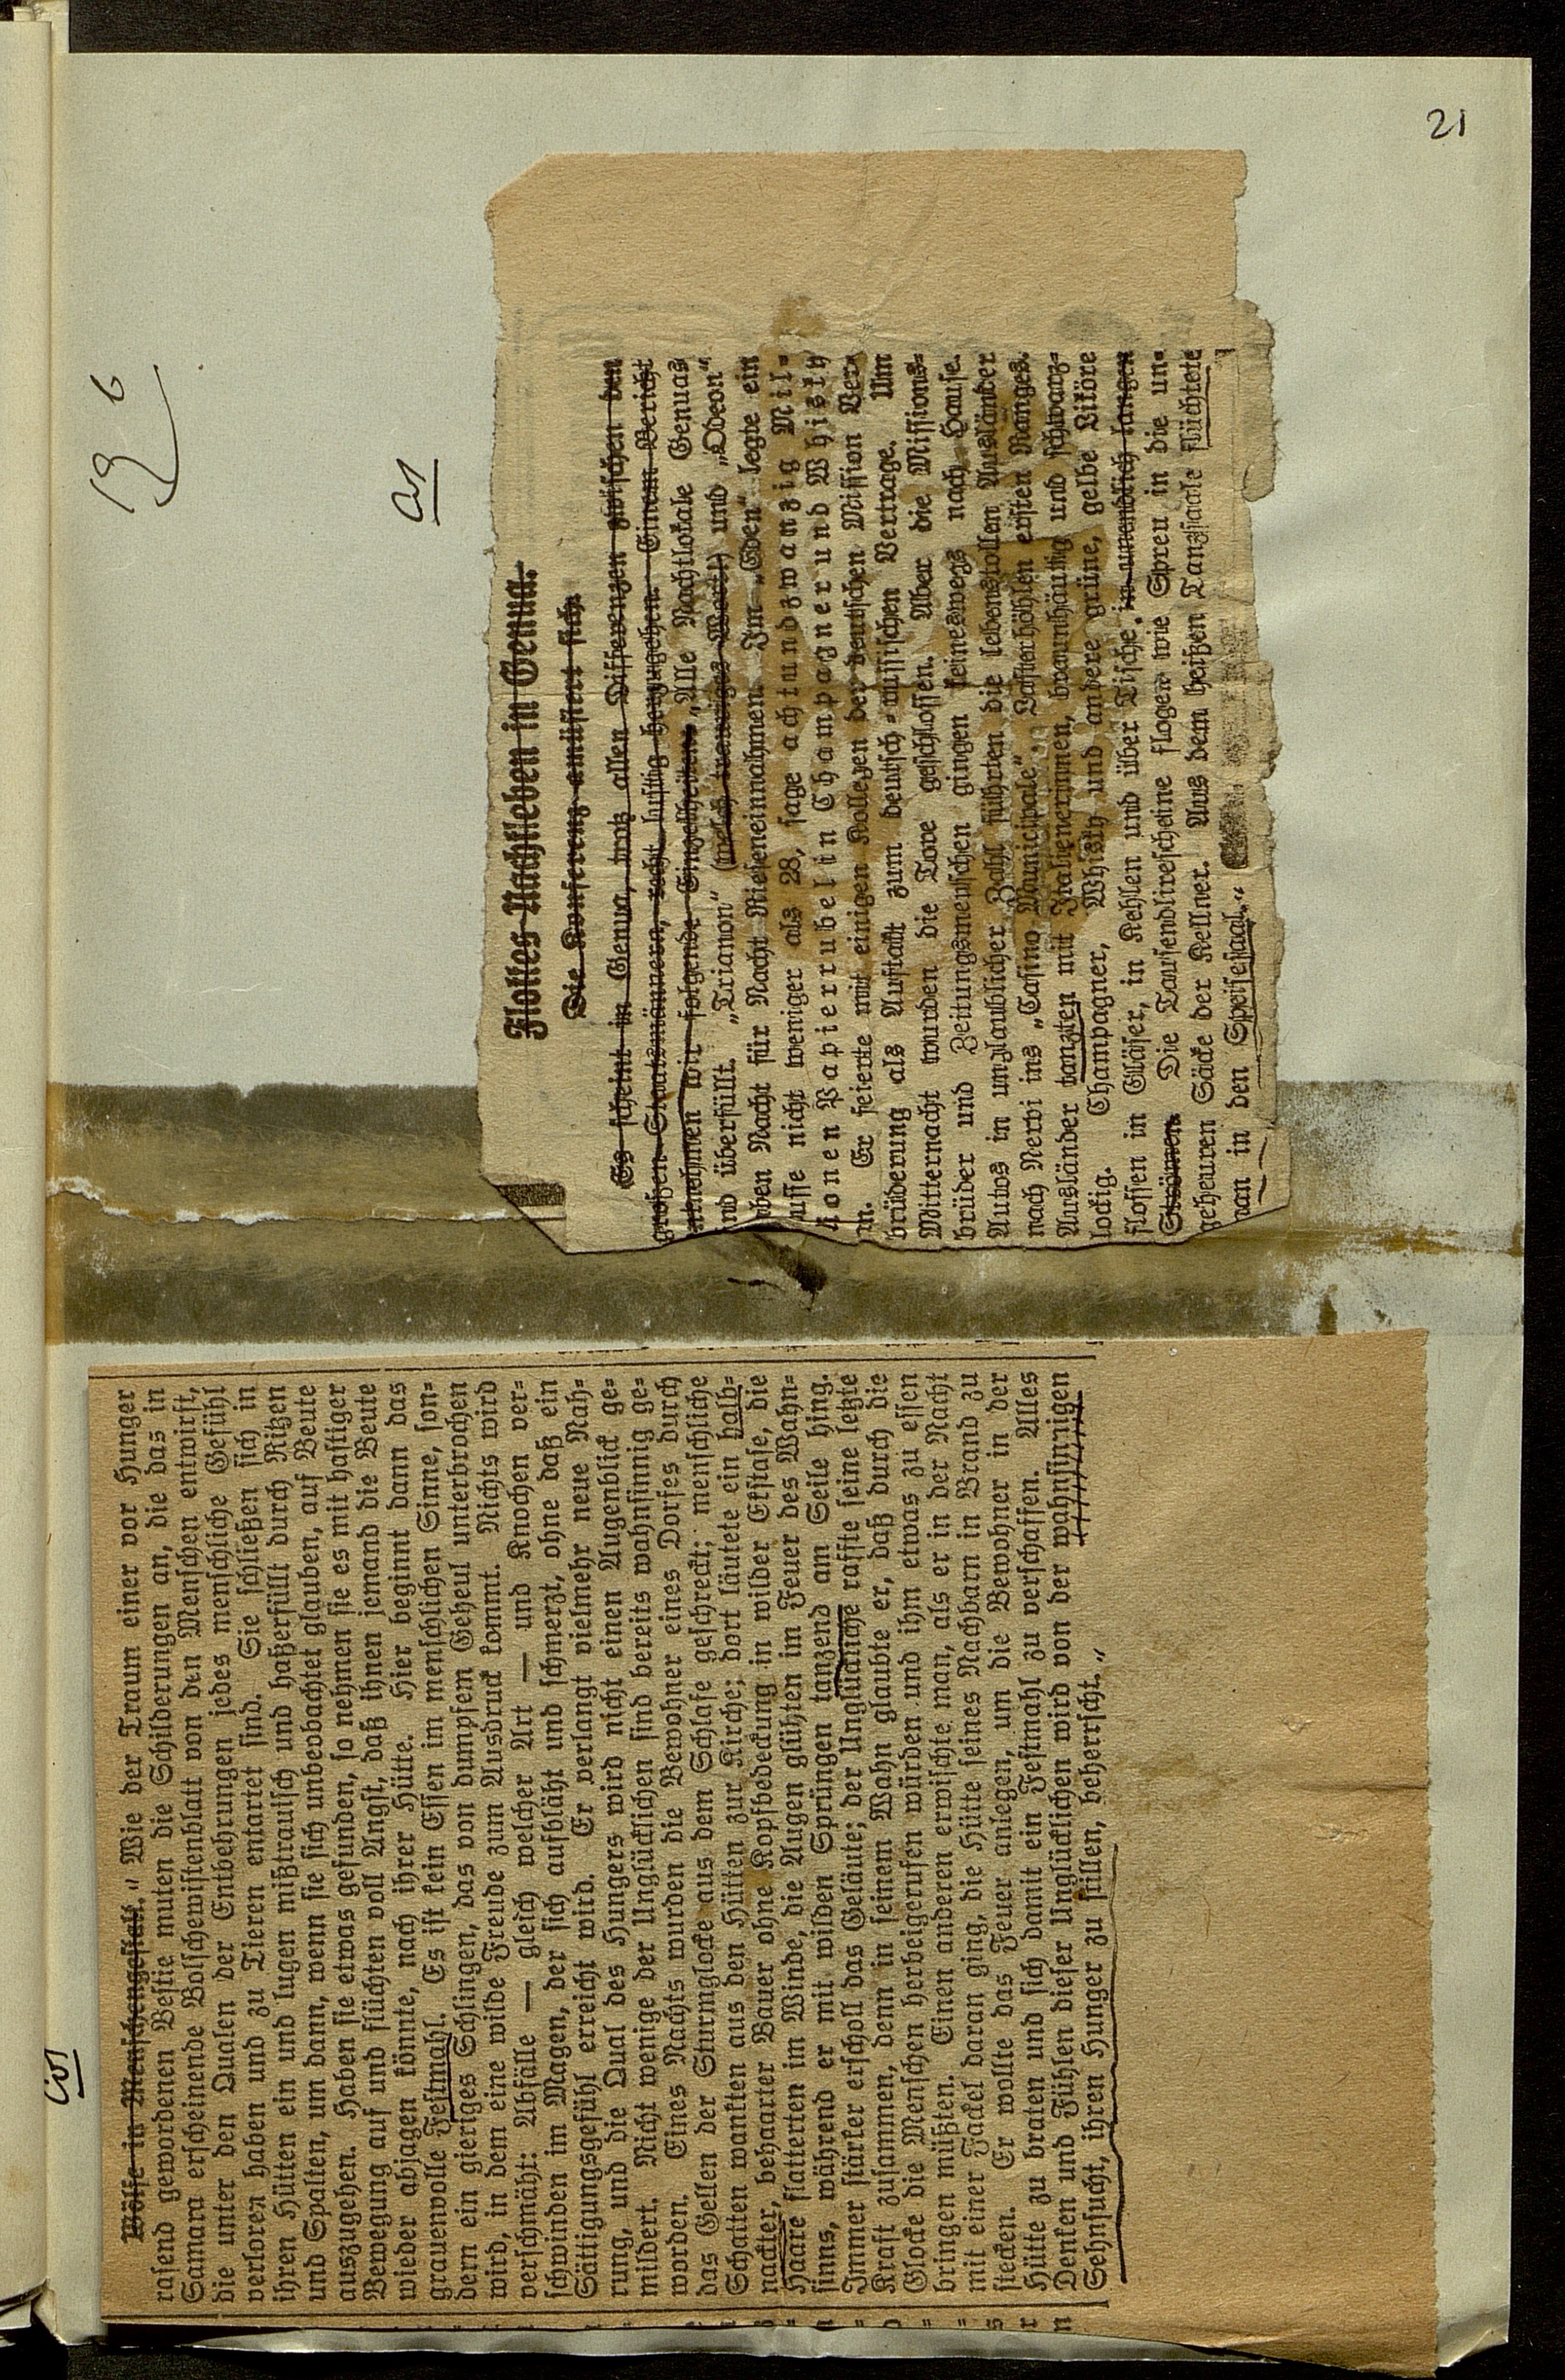 21
as
Flottes Nachtleben in Genua.
Die Konferenz amüsiert sich.
Es scheint in Genua, trotz allen Differenzen zwischen den
großen Staatsmännern, recht lustig herzugehen. Einem Bericht
entnehmen wir folgende Einzelheiten: „Alle Nachtlokale Genuas
ind überfüllt. „Trianon“ (welch trauriges Wort!) und „Odeon“
oben Nacht für Nacht Rieseneinnahmen. Im „Eden“ legte ein
usse nicht weniger als 28, sage achtundzwanzig Mil-
ionen Papierrubel in Champagner und Whisky
n. Er feierte mit einigen Kollegen der deutschen Mission Ver-
brüderung als Auftakt zum deutsch-russischen Vertrage. Um
Mitternacht wurden die Tore geschlossen. Aber die Missions-
brüder und Zeitungsmenschen gingen keineswegs nach Hause.
Autos in unglaublicher Zahl führten die lebenstollen Ausländer
nach Nervi ins „Casino Municipale“. Lasterhöhlen ersten Ranges.
Ausländer tanzten mit Italienerinnen, braunhäutig und schwarz-
lockig. Champagner, Whisky und andere grüne, gelbe Liköre
flossen in Gläser, in Kehlen und über Tische, in unendlich langen
Strömen. Die Tausendlirescheine flogen wie Spreu in die un-
geheuren Säcke der Kellner. Aus dem heißen Tanzsaale flüchtete
man in den Speisesaal.“
as
Wölfe in Menschengestalt.“ Wie der Traum einer vor Hunger
rasend gewordenen Bestie muten die Schilderungen an, die das in
Samara erscheinende Bolschewistenblatt von den Menschen entwirft,
die unter den Qualen der Entbehrungen jedes menschliche Gefühl
verloren haben und zu Tieren entartet sind. Sie schließen sich in
ihren Hütten ein und lugen mißtrauisch und haßerfüllt durch Ritzen
und Spalten, um dann, wenn sie sich unbeobachtet glauben, auf Beute
auszugehen. Haben sie etwas gefunden, so nehmen sie es mit hastiger
Bewegung auf und flüchten voll Angst, daß ihnen jemand die Beute
wieder abjagen könnte, nach ihrer Hütte. Hier beginnt dann das
grauenvolle Festmahl. Es ist kein Essen im menschlichen Sinne, son-
dern ein gieriges Schlingen, das von dumpfem Geheul unterbrochen
wird, in dem eine wilde Freude zum Ausdruck kommt. Nichts wird
verschmäht: Abfälle — gleich welcher Art — und Knochen ver-
schwinden im Magen, der sich aufbläht und schmerzt, ohne daß ein
Sättigungsgefühl erreicht wird. Er verlangt vielmehr neue Nah-
rung, und die Qual des Hungers wird nicht einen Augenblick ge-
mildert. Nicht wenige der Unglücklichen sind bereits wahnsinnig ge-
worden. Eines Nachts wurden die Bewohner eines Dorfes durch
das Gellen der Sturmglocke aus dem Schlafe geschreckt; menschliche
Schatten wankten aus den Hütten zur Kirche; dort läutete ein halb-
nackter, behaarter Bauer ohne Kopfbedeckung in wilder Ekstase, die
Haare flatterten im Winde, die Augen glühten im Feuer des Wahn-
sinns, während er mit wilden Sprüngen tanzend am Seile hing.
Immer stärker erscholl das Geläute; der Unglückliche raffte seine letzte
Kraft zusammen, denn in seinem Wahn glaubte er, daß durch die
Glocke die Menschen herbeigerufen würden und ihm etwas zu essen
bringen müßten. Einen anderen erwischte man, als er in der Nacht
mit einer Fackel daran ging, die Hütte seines Nachbarn in Brand zu
stecken. Er wollte das Feuer anlegen, um die Bewohner in der
Hütte zu braten und sich damit ein Festmahl zu verschaffen. Alles
Denken und Fühlen dieser Unglücklichen wird von der wahnsinnigen
Sehnsucht, ihren Hunger zu stillen, beherrscht.“